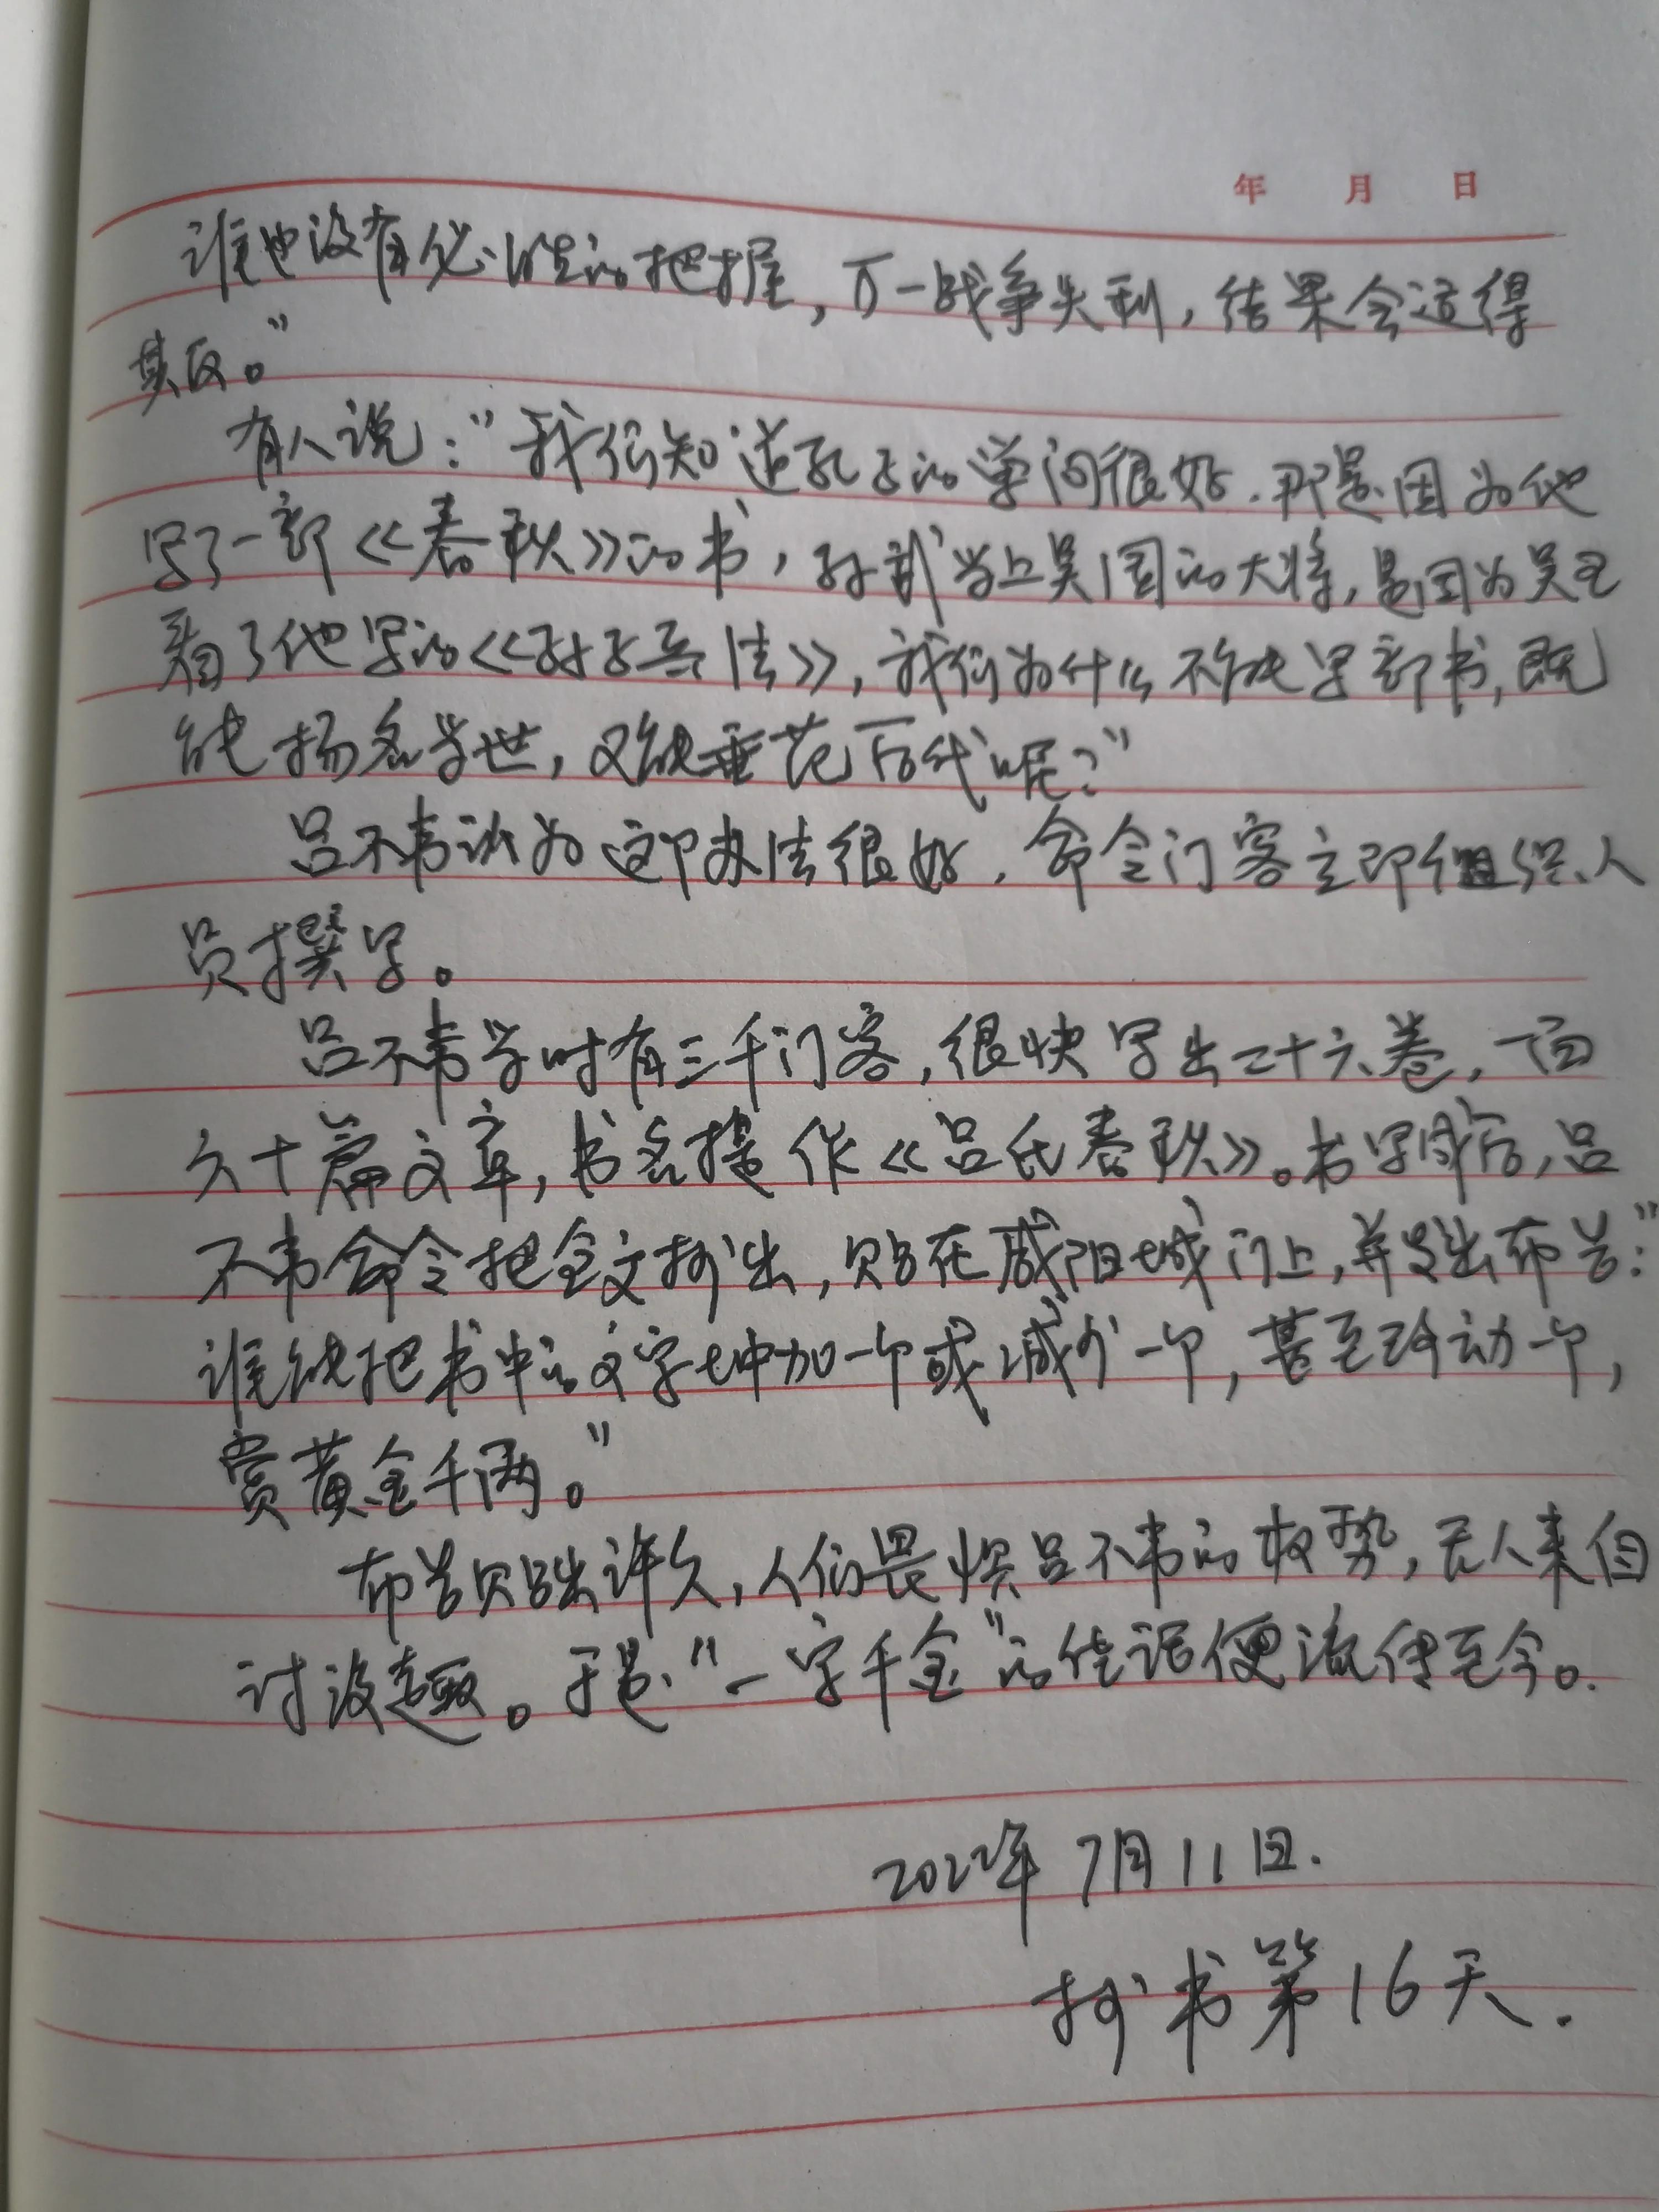 年 月 日
谁也没有必胜的把握，万一战争失利，结果会适得
其反。"
有人说："我们知道孔子的学问很好，那是因为他
写了一部《春秋》的书，孙武当上吴国的大将，是因为吴王
看了他写的《孙子兵法》，我们为什么不能写部书，既
能扬名当世，又能垂范后代呢？"
吕不韦认为这个办法很好，命令门客立即组织人
员撰写。
吕不韦当时有三千门客，很快写出二十六卷，一百
六十篇文章，书名提作《吕氏春秋》。书写成后，吕
不韦命令把全文抄出，贴在咸阳城门上，并发出布告："
谁能把书中的文字增加一个或减少一个，甚至改动一个，
赏黄金千两。"
布告贴出许久，人们畏惧吕不韦的权势，无人来自
讨没趣。于是"一字千金"的佳话便流传至今。
2022年7月11日.
抄书第16天.